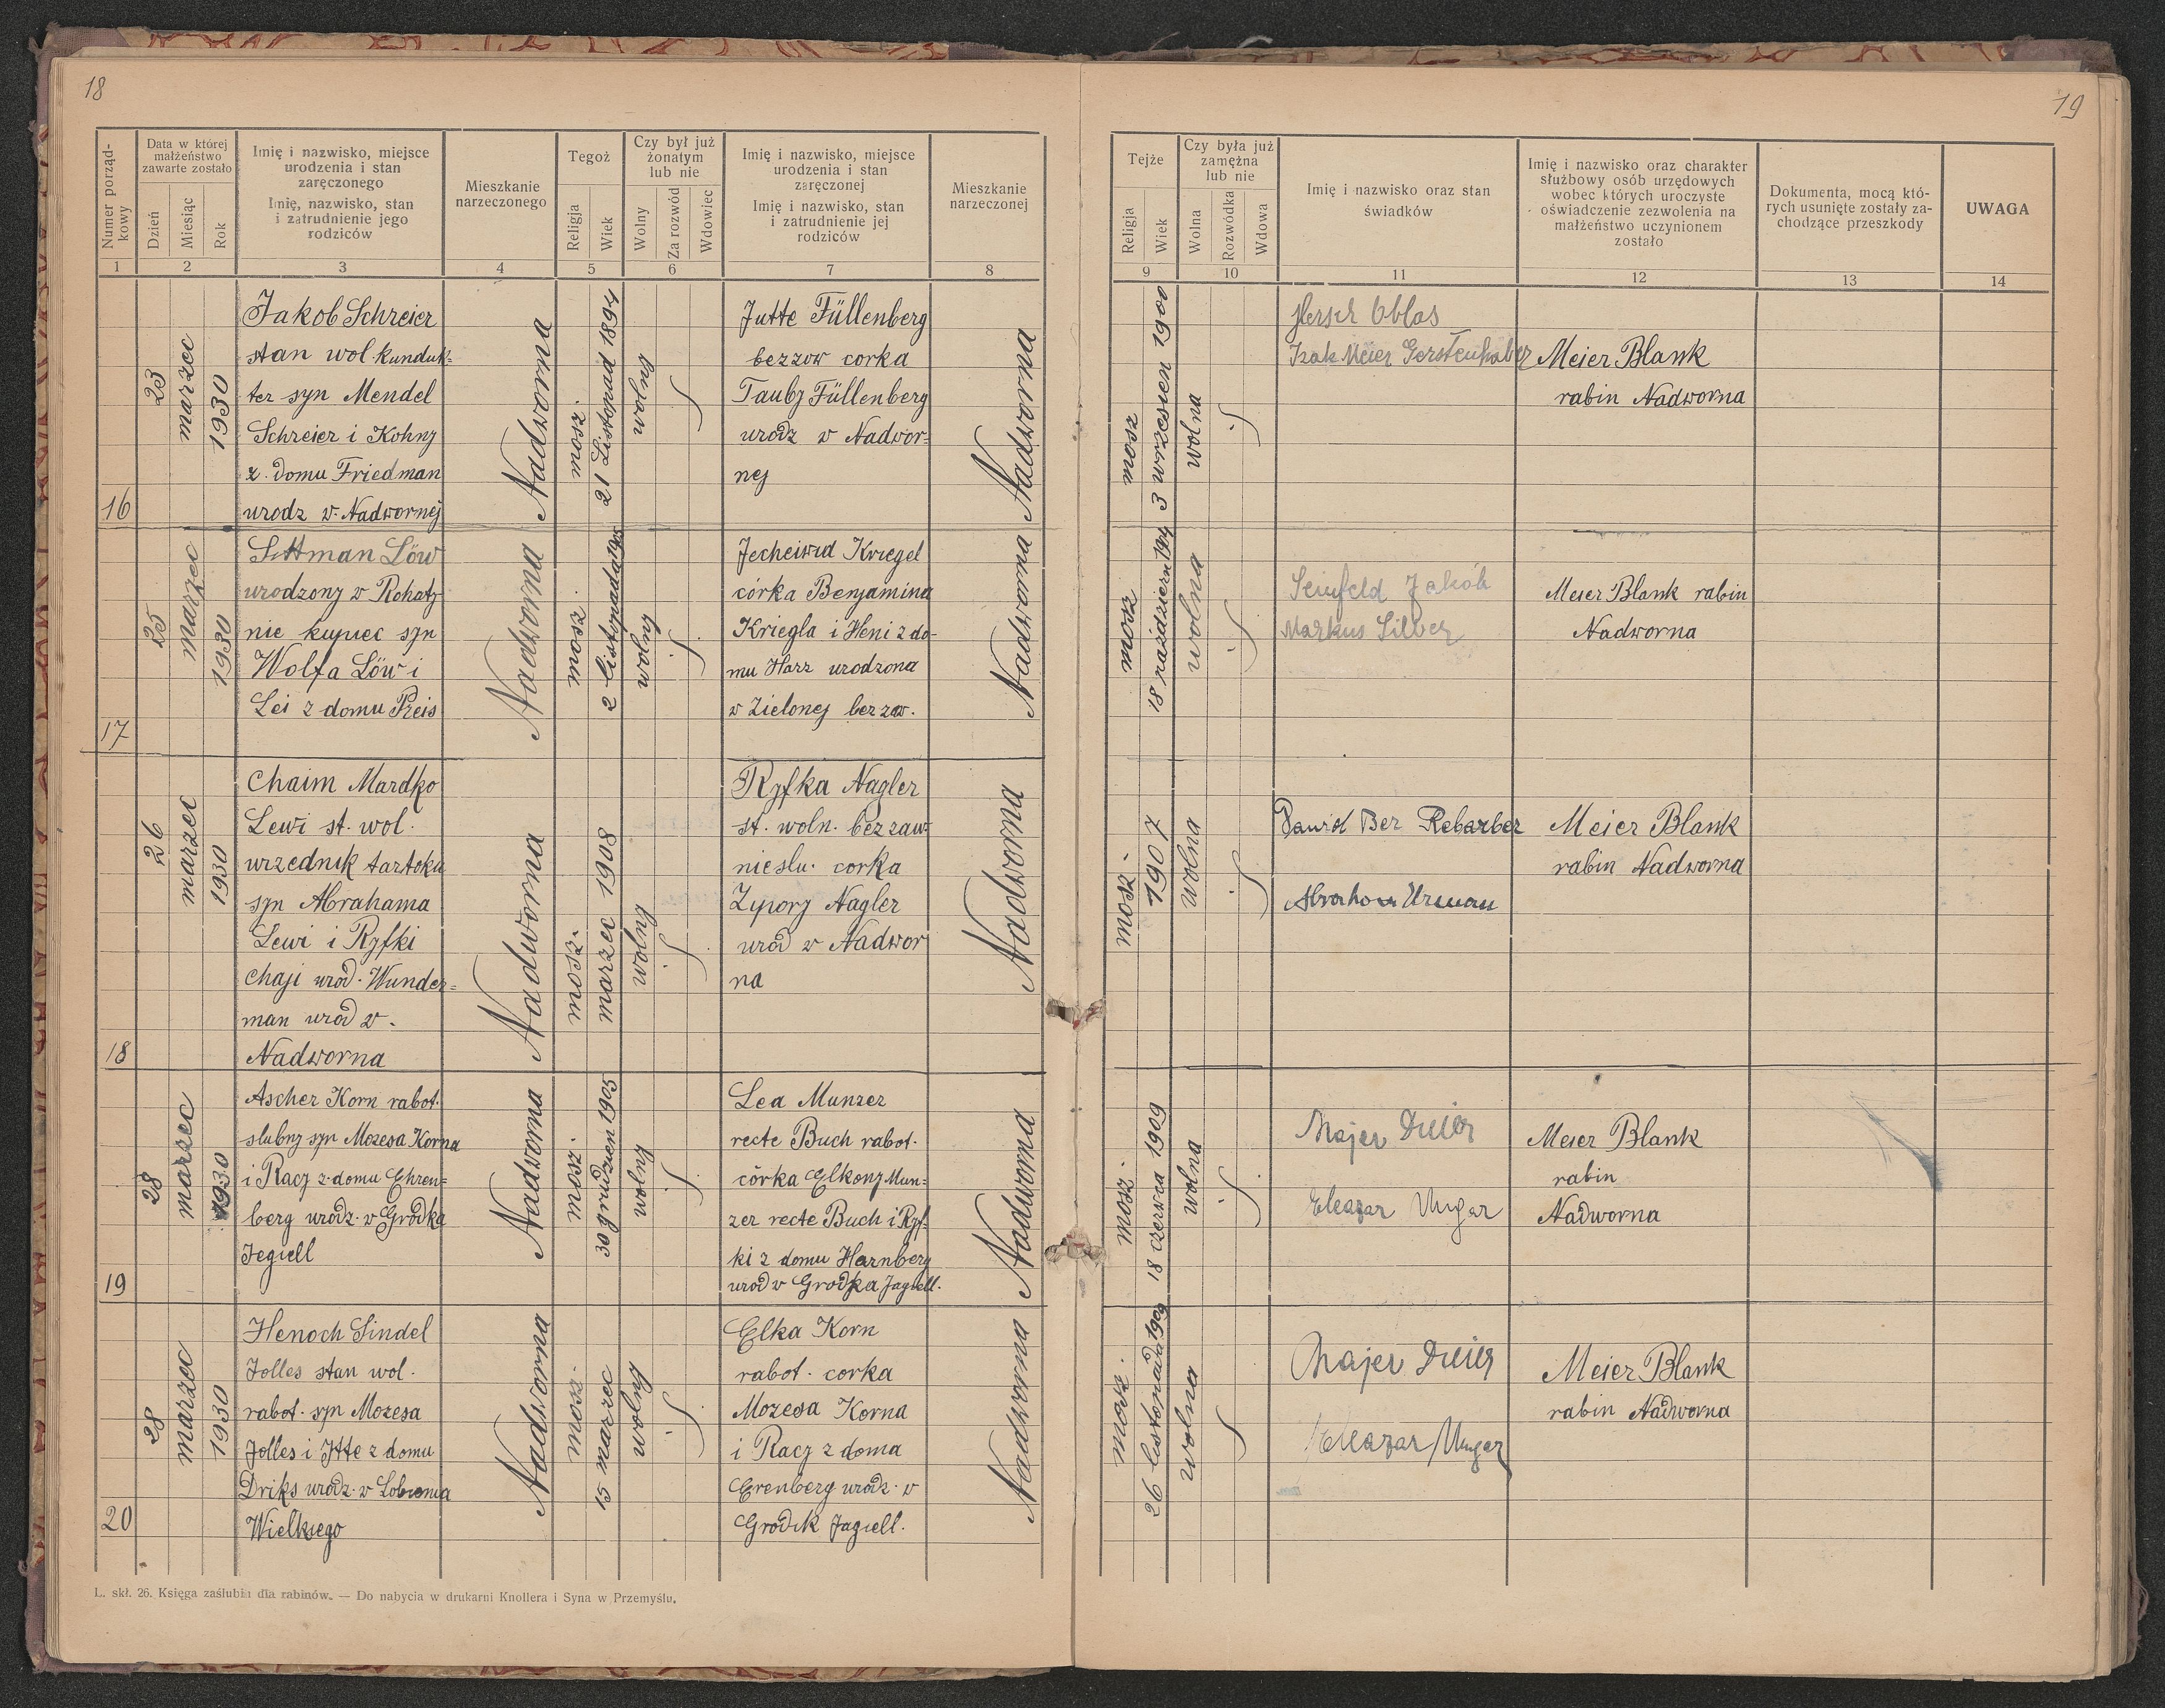 18
19
Numer porząd-
kowy
Data w której
małżeństwo
zawarte zostało
Dzień
Miesiąc
Rok
Imię i nazwisko, miejsce
urodzenia i stan
zaręczonego
Imię, nazwisko, stan
i zatrudnienie jego
rodziców
Mieszkanie
narzeczonego
Tegoż
Religja
Wiek
Czy był już
żonatym
lub nie
Wolny
Za rozwód
Wdowiec
Imię i nazwisko, miejsce
urodzenia i stan
zaręczonej
Imię i nazwisko, stan
i zatrudnienie jej
rodziców
Mieszkanie
narzeczonej
Tejże
Religja
Wiek
Czy była już
zamężna
lub nie
Wolna
Rozwódka
Wdowa
Imię i nazwisko oraz stan
świadków
Imię i nazwisko oraz charakter
służbowy osób urzędowych
wobec których uroczyste
oświadczenie zezwolenia na
małżeństwo uczynionem
zostało
Dokumenta, mocą któ-
rych usunięte zostały za-
chodzące przeszkody
UWAGA
1 2 3 4 5 6 7 8 9 10 11 12 13 14
16
23
marzec
1930
Jakob Schreier
stan wol. kunduk=
ter syn Mendel
Schreier i Kohny
z. domu Friedman
urodz w. Nadwornej
Nadworna
mosz.
21 Listopad 1894
wolny
Jutte Füllenberg
bezzow corka
Tauby Füllenberg
urodz w Nadwor=
nej
Nadworna
mosz
3 wrzesien 1900
wolna
Hersch Oblas
Izak Meier Gerstenhaber
Meier Blank
rabin Nadworna
17
25
marzec
1930
Sittman Löw
urodzony w Rohaty
nie kupiec syn
Wolfa Löw i
Lei z domu Preis
Nadworna
mosz.
2 listopada
wolny
Jecheiwed Kriegel
córka Benjamina
Kriegla i Heni z do-
mu Harz urodzona
w Zielonej bez zaw.
Nadworna
mosz
18
wolna
Seinfeld Jakób
Markus Silber
Meier Blank rabin
Nadworna
18
26
marzec
1930
Chaim Mardko
Lewi st. wol.
urzednik tartaku
syn Abrahama
Lewi i Ryfki
Chaji urod. Wunder=
man urod w.
Nadworna
Nadworna
mosz.
marzec 1908
wolny
Ryfka Nagler
st. woln. bez zaw.
nieslu. corka
Zypory Nagler
urod w Nadwor
na
Nadworna
mosz.
1907
wolna
Dawid Ber Rebarber
Abraham Urman
Meier Blank
rabin Nadworna
19
28
marzec
1930
Ascher Korn rabot.
slubny syn Mozesa Korna
i Racy z domu Ehren=
berg urodz. w Grodka
Jegiell
Nadworna
mosz.
30 grudzien 1905
wolny
Lea Munzer
recte Buch rabot.
córka Elkony Mun=
zer recte Buch i Ryf=
ki z domu Harnberg
urod w Grodka Jagiell.
Nadworna
mosz.
18 czerwca 1909
wolna
Majer Dreier
Eleazar Ungar
Meier Blank
rabin
Nadworna
20
28
marzec
1930
Henoch Sindel
Jolles stan wol.
rabot. syn Mozesa
Jolles i Itte z domu
Driks urodz. w
Wielkiego
Nadworna
mosz.
15 marzec
wolny
Elka Korn
rabot. corka
Mozesa Korna
i Racy z doma
Erenberg urodz. w
Grodik Jagiell.
Nadworna
mosz.
26 listopada 1909
wolna
Majer Dreier
Eleazar Ungar
Meier Blank
rabin Nadworna
L. skł. 26. Księga zaślubin dla rabinów. — Do nabycia w drukarni Knollera i Syna w Przemyślu.